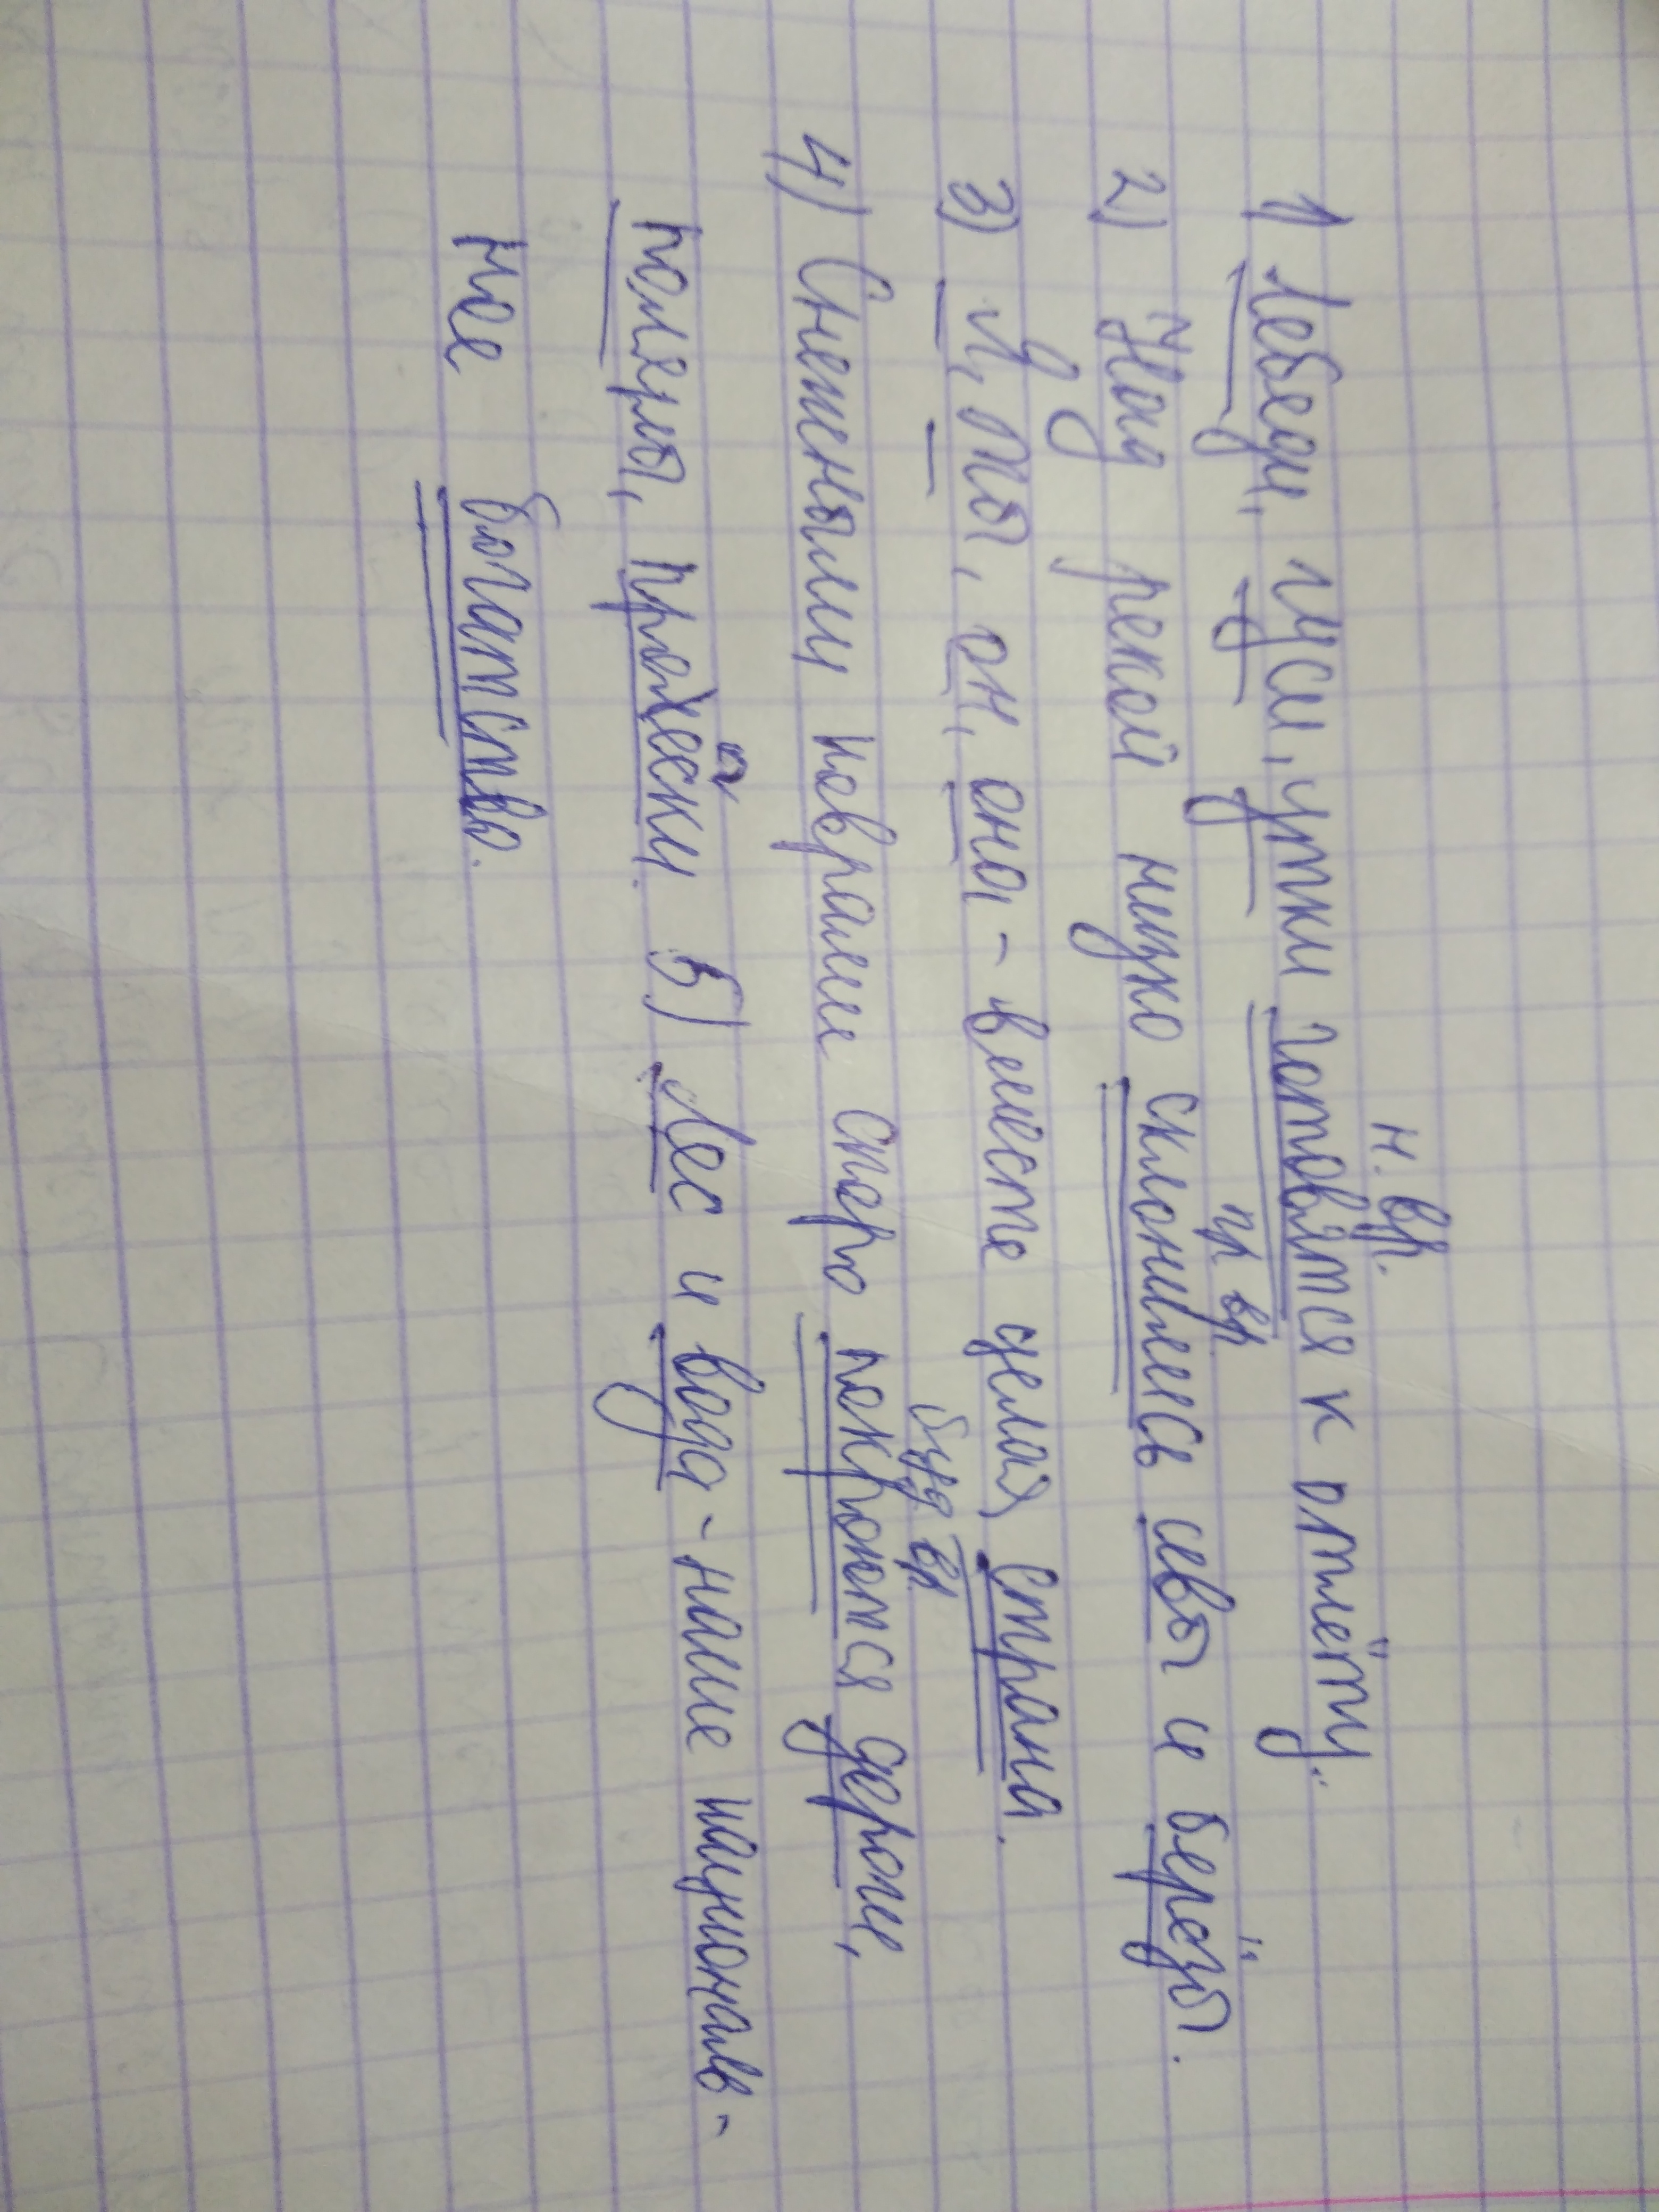 н. вр.
1) Лебеди, гуси, утки готовятся к отлёту.
пр вр
2) Над рекой низко склонились ивы и берёзы.
3) Я, ты, он, она - вместе целая страна.
буд вр
4) Снежными коврами скоро покроются дороги,
поляны, просеки. 5) Лес и вода - наше националь-
ное богатство.